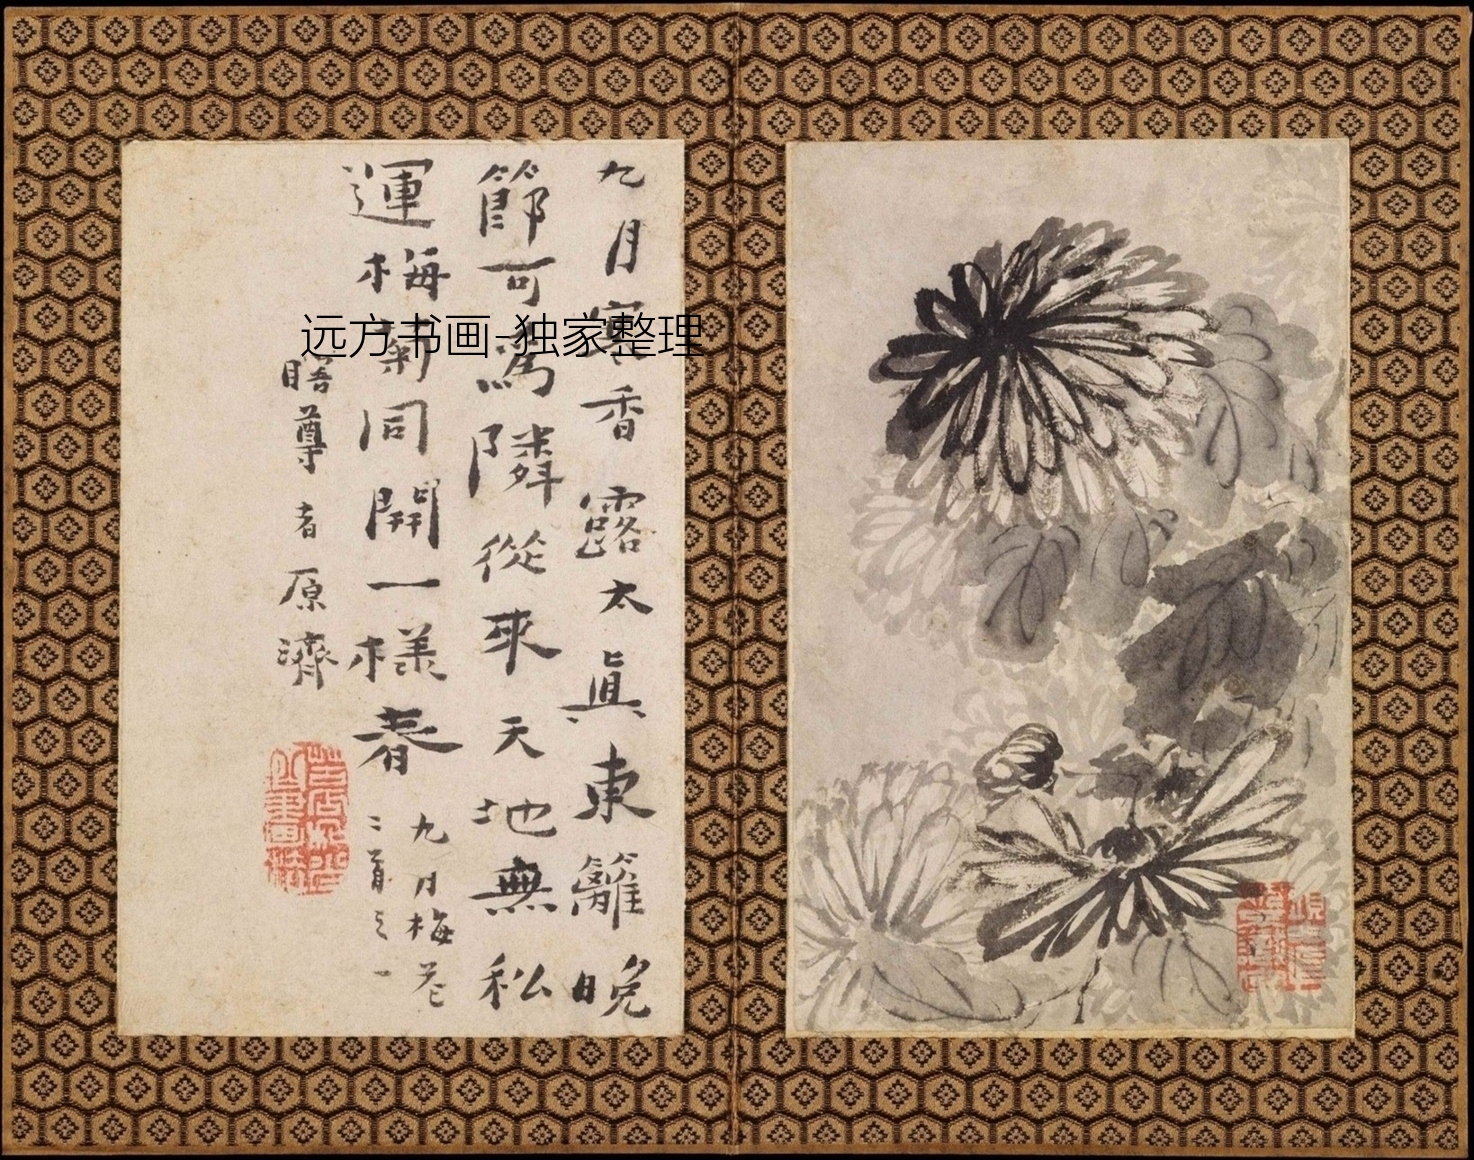 九月寒香露太真東籬晚
節可為隣從來天地無私
運梅菊同開一樣春
九月梅花
二首之一
瞎尊者原濟
远方书画-独家整理